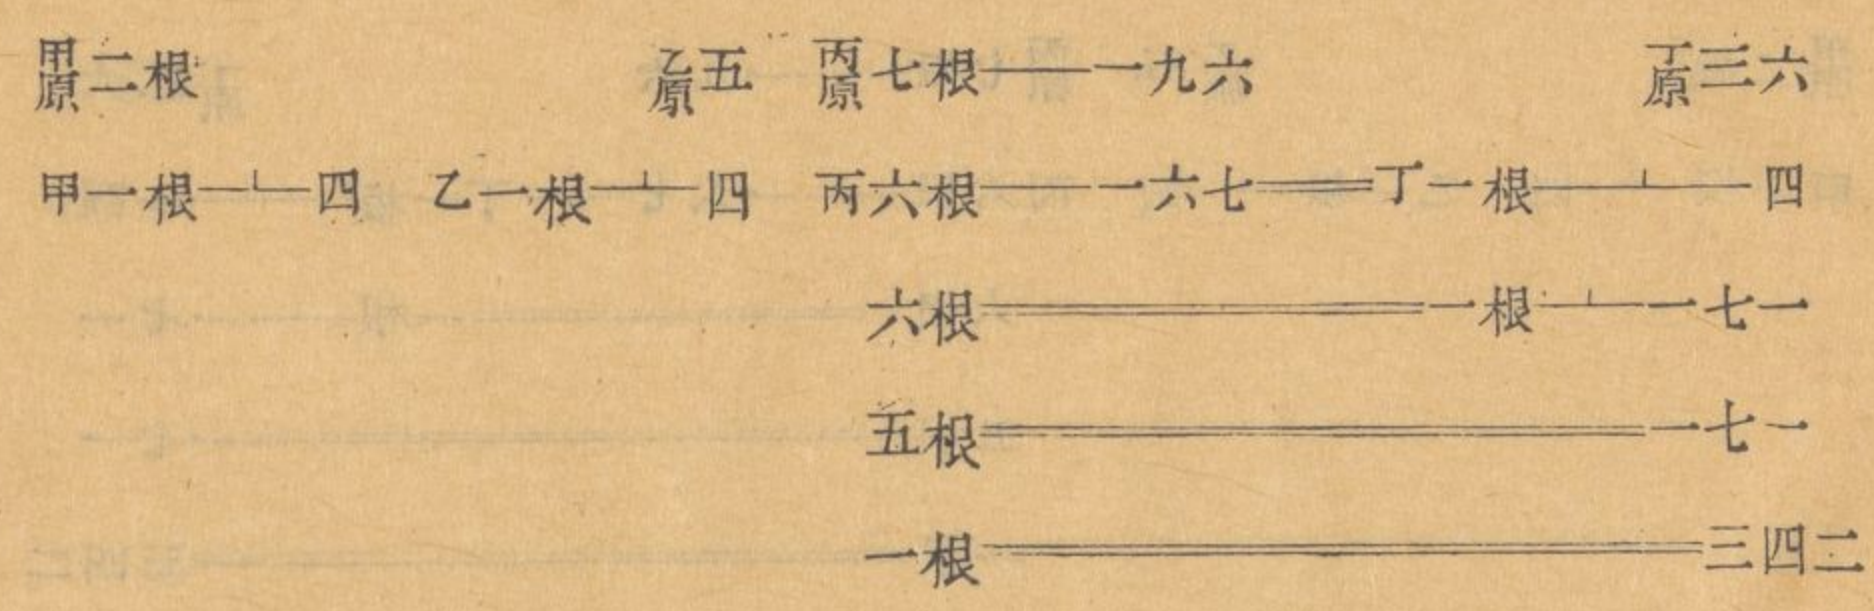 甲原二根 乙原五 丙原七根——一九六 丁原三六
甲一根—⊥—四 乙一根—⊥—四 丙六根——一六七══丁一根—⊥—四
六根══一根—⊥—一七一
五根══一七一
一根══三四二